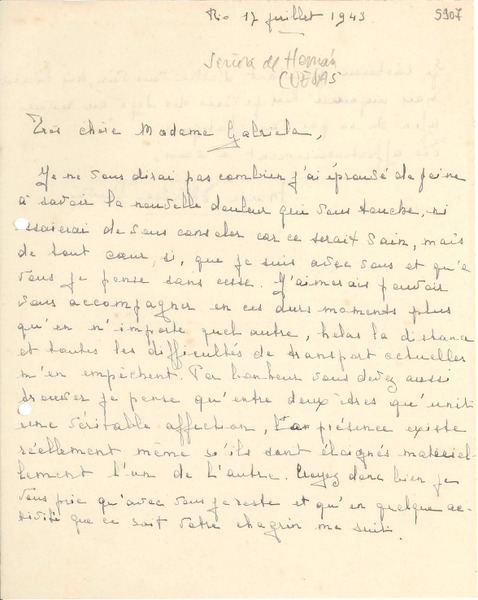 Rio 17 juillet 1943
5907
Señora de Hernán
CUEVAS
Très chère Madame Gabriela,
Je ne vous dirai pas combien j'ai éprouvé de peine
à savoir la nouvelle douleur qui vous touche, ni
ssaierai de vous consoler car ce serait vain, mais
de tout cœur, si, que je suis avec vous et qu'à
vous je pense sans cesse. J'aimerais pouvoir
vous accompagner en ces durs moments plus
qu'en n'importe quel autre, hélas la distance
et toutes les difficultés de transport actuelles
m'en empêchent. Par bonheur vous devez aussi
trouver je pense qu'entre deux êtres qu'unit
une véritable affection, la présence existe
réellement même s'ils sont éloignés matériel-
lement l'un de l'autre. Croyez donc bien je
vous prie qu'avec vous je reste et qu'en quelque ac-
tivité que ce soit votre chagrin me suit.